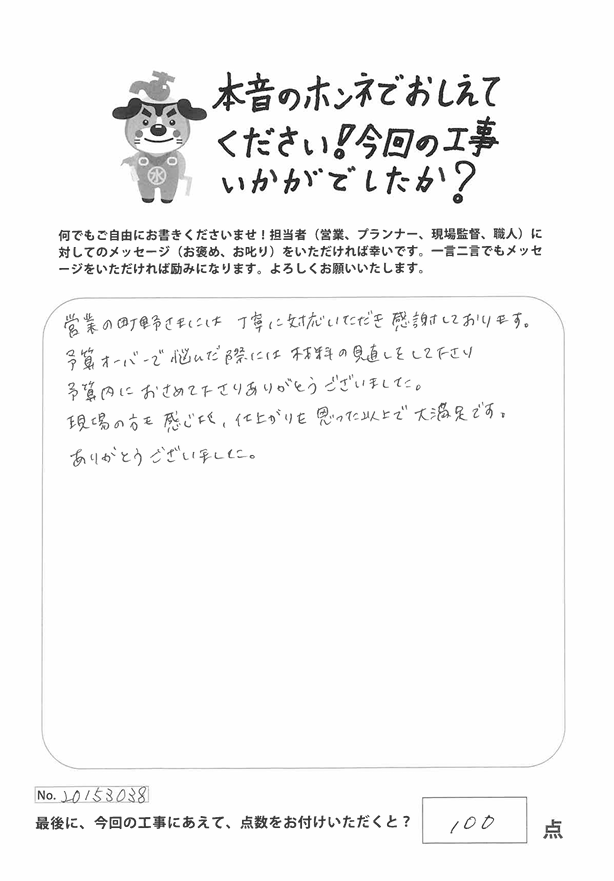 本音のホンネでおしえて
ください!今回の工事
いかがでしたか?
水
何でもご自由にお書きくださいませ!担当者(営業、プランナー、現場監督、職人)に
対してのメッセージ(お褒め、お叱り)をいただければ幸いです。一言二言でもメッセ
ージをいただければ励みになります。よろしくお願いいたします。
営業の町野さまには 丁寧に対応いただき 感謝しております。
予算オーバーで悩んだ際には 材料の見直しをして下さり
予算内に おさめて下さりありがとうございました。
現場の方も 感じよく、仕上がりも 思った以上で 大満足です。
ありがとうございました。
No. 20153038
最後に、今回の工事にあえて、点数をお付けいただくと?
100
点